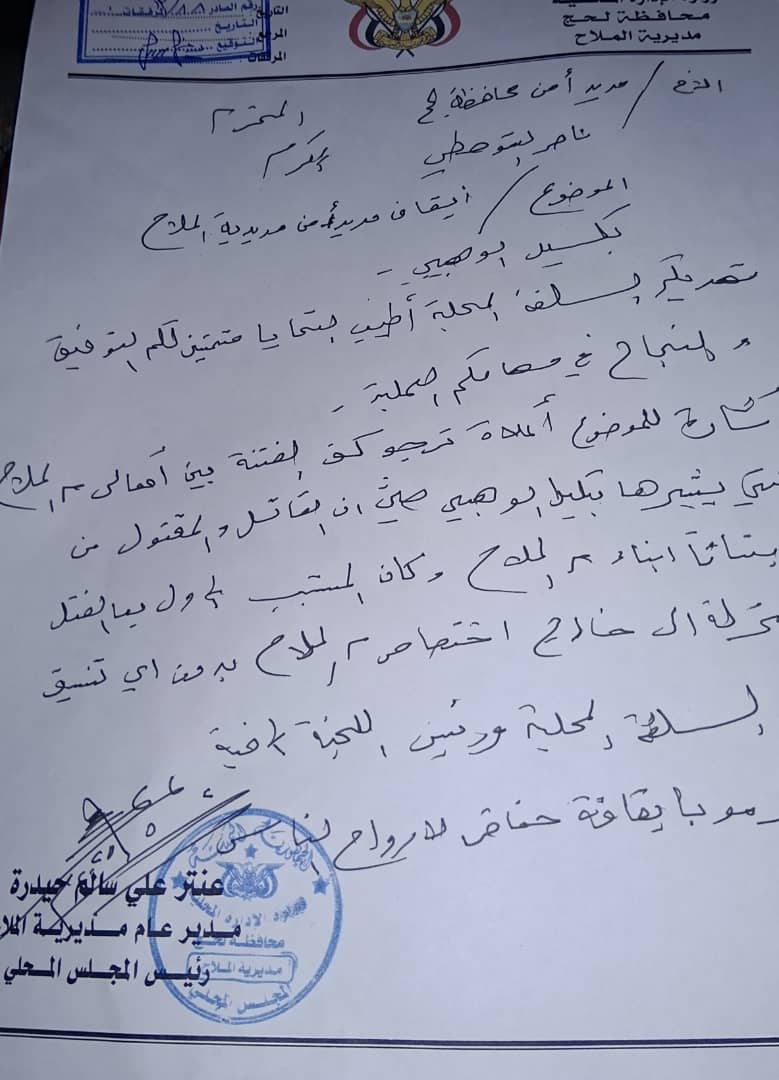 محافظة لحج
مديرية الملاح
رقم الصادر
التاريخ
التاريخ
المرفقات
الاخ / مدير أمن محافظة لحج المحترم
ناصر الشوحطي المكرم
الموضوع / ايقاف مدير أمن مديرية الملاح
بكيل الوهبي -
تهديكم السلطة المحلية أطيب التحايا متمنين لكم التوفيق
والنجاح في مهامكم العملية -
للموضوع أعلاه نرجو كف الفتنة بين أهالي م الملاح
يثيرها بكيل الوهبي حيث ان القاتل والمقتول من
ابناء م الملاح وكان المتسبب الاول بهالقتل
الى خارج اختصاص م الملاح بدون اي تنسيق
السلطة المحلية ورئيس اللجنة الامنية
لارواح الناس
عنتر علي سالم حيدرة
مدير عام مديرية الملا
رئيس المجلس المحلي
وزارة الإدارة المحلية
محافظة لحج
مديرية الملاح
المجلس المحلي